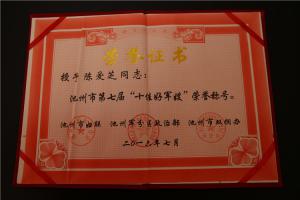 荣誉证书
授予陈爱芝同志：
池州市第七届“十佳好军嫂”荣誉称号。
池州市妇联 池州军分区政治部 池州市双拥办
二〇一六年七月